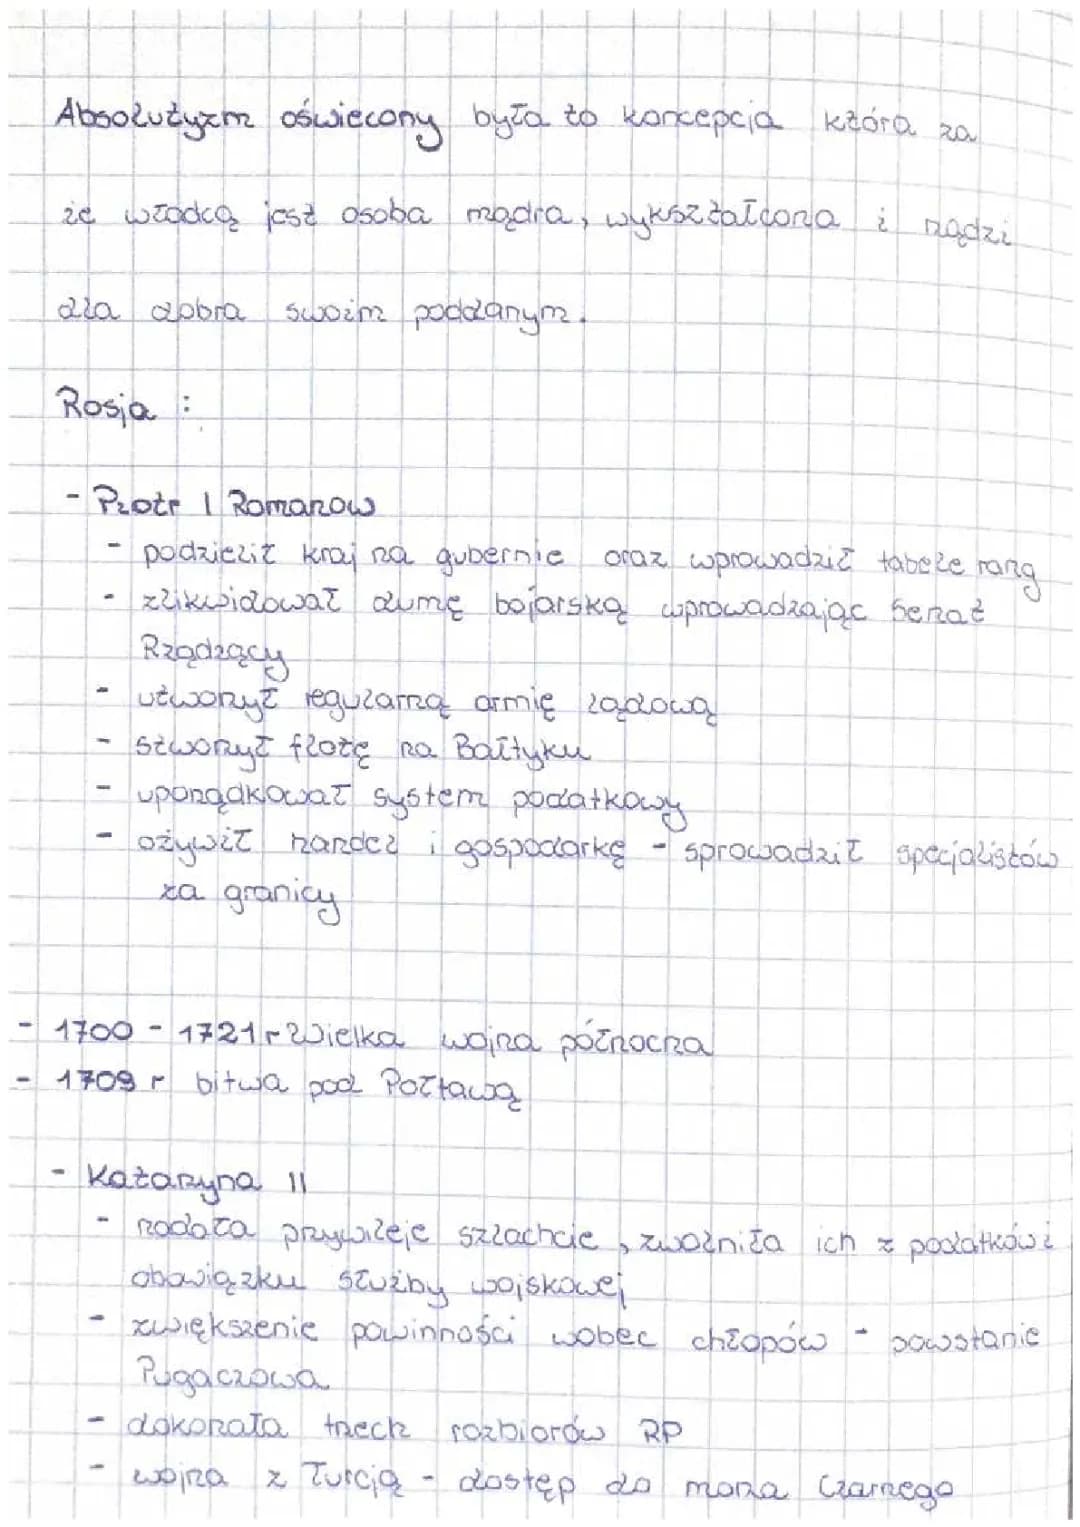 Absolutyzm oświecony była to koncepcja która za
że władcą jest osoba mądra, wykształcona i rządzi
dla dobra swoim poddanym.
Rosja :
- Piotr I Romanow
- podzielił kraj na gubernie oraz wprowadził tabele rang
- zlikwidował dumę bojarską wprowadzając Senat
Rządzący
- utworzył regularną armię lądową
- stworzył flotę na Bałtyku
- uporządkował system podatkowy
- ożywił handel i gospodarkę - sprowadził specjalistów
za granicy
- 1700 - 1721 r Wielka wojna północna
- 1709 r bitwa pod Połtawą
- Katarzyna II
- nadała przywileje szlachcie, zwolniła ich z podatków i
obowiązku służby wojskowej
- zwiększenie powinności wobec chłopów - powstanie
Pugaczowa
- dokonała trzech rozbiorów RP
- wojna z Turcją - dostęp do morza Czarnego